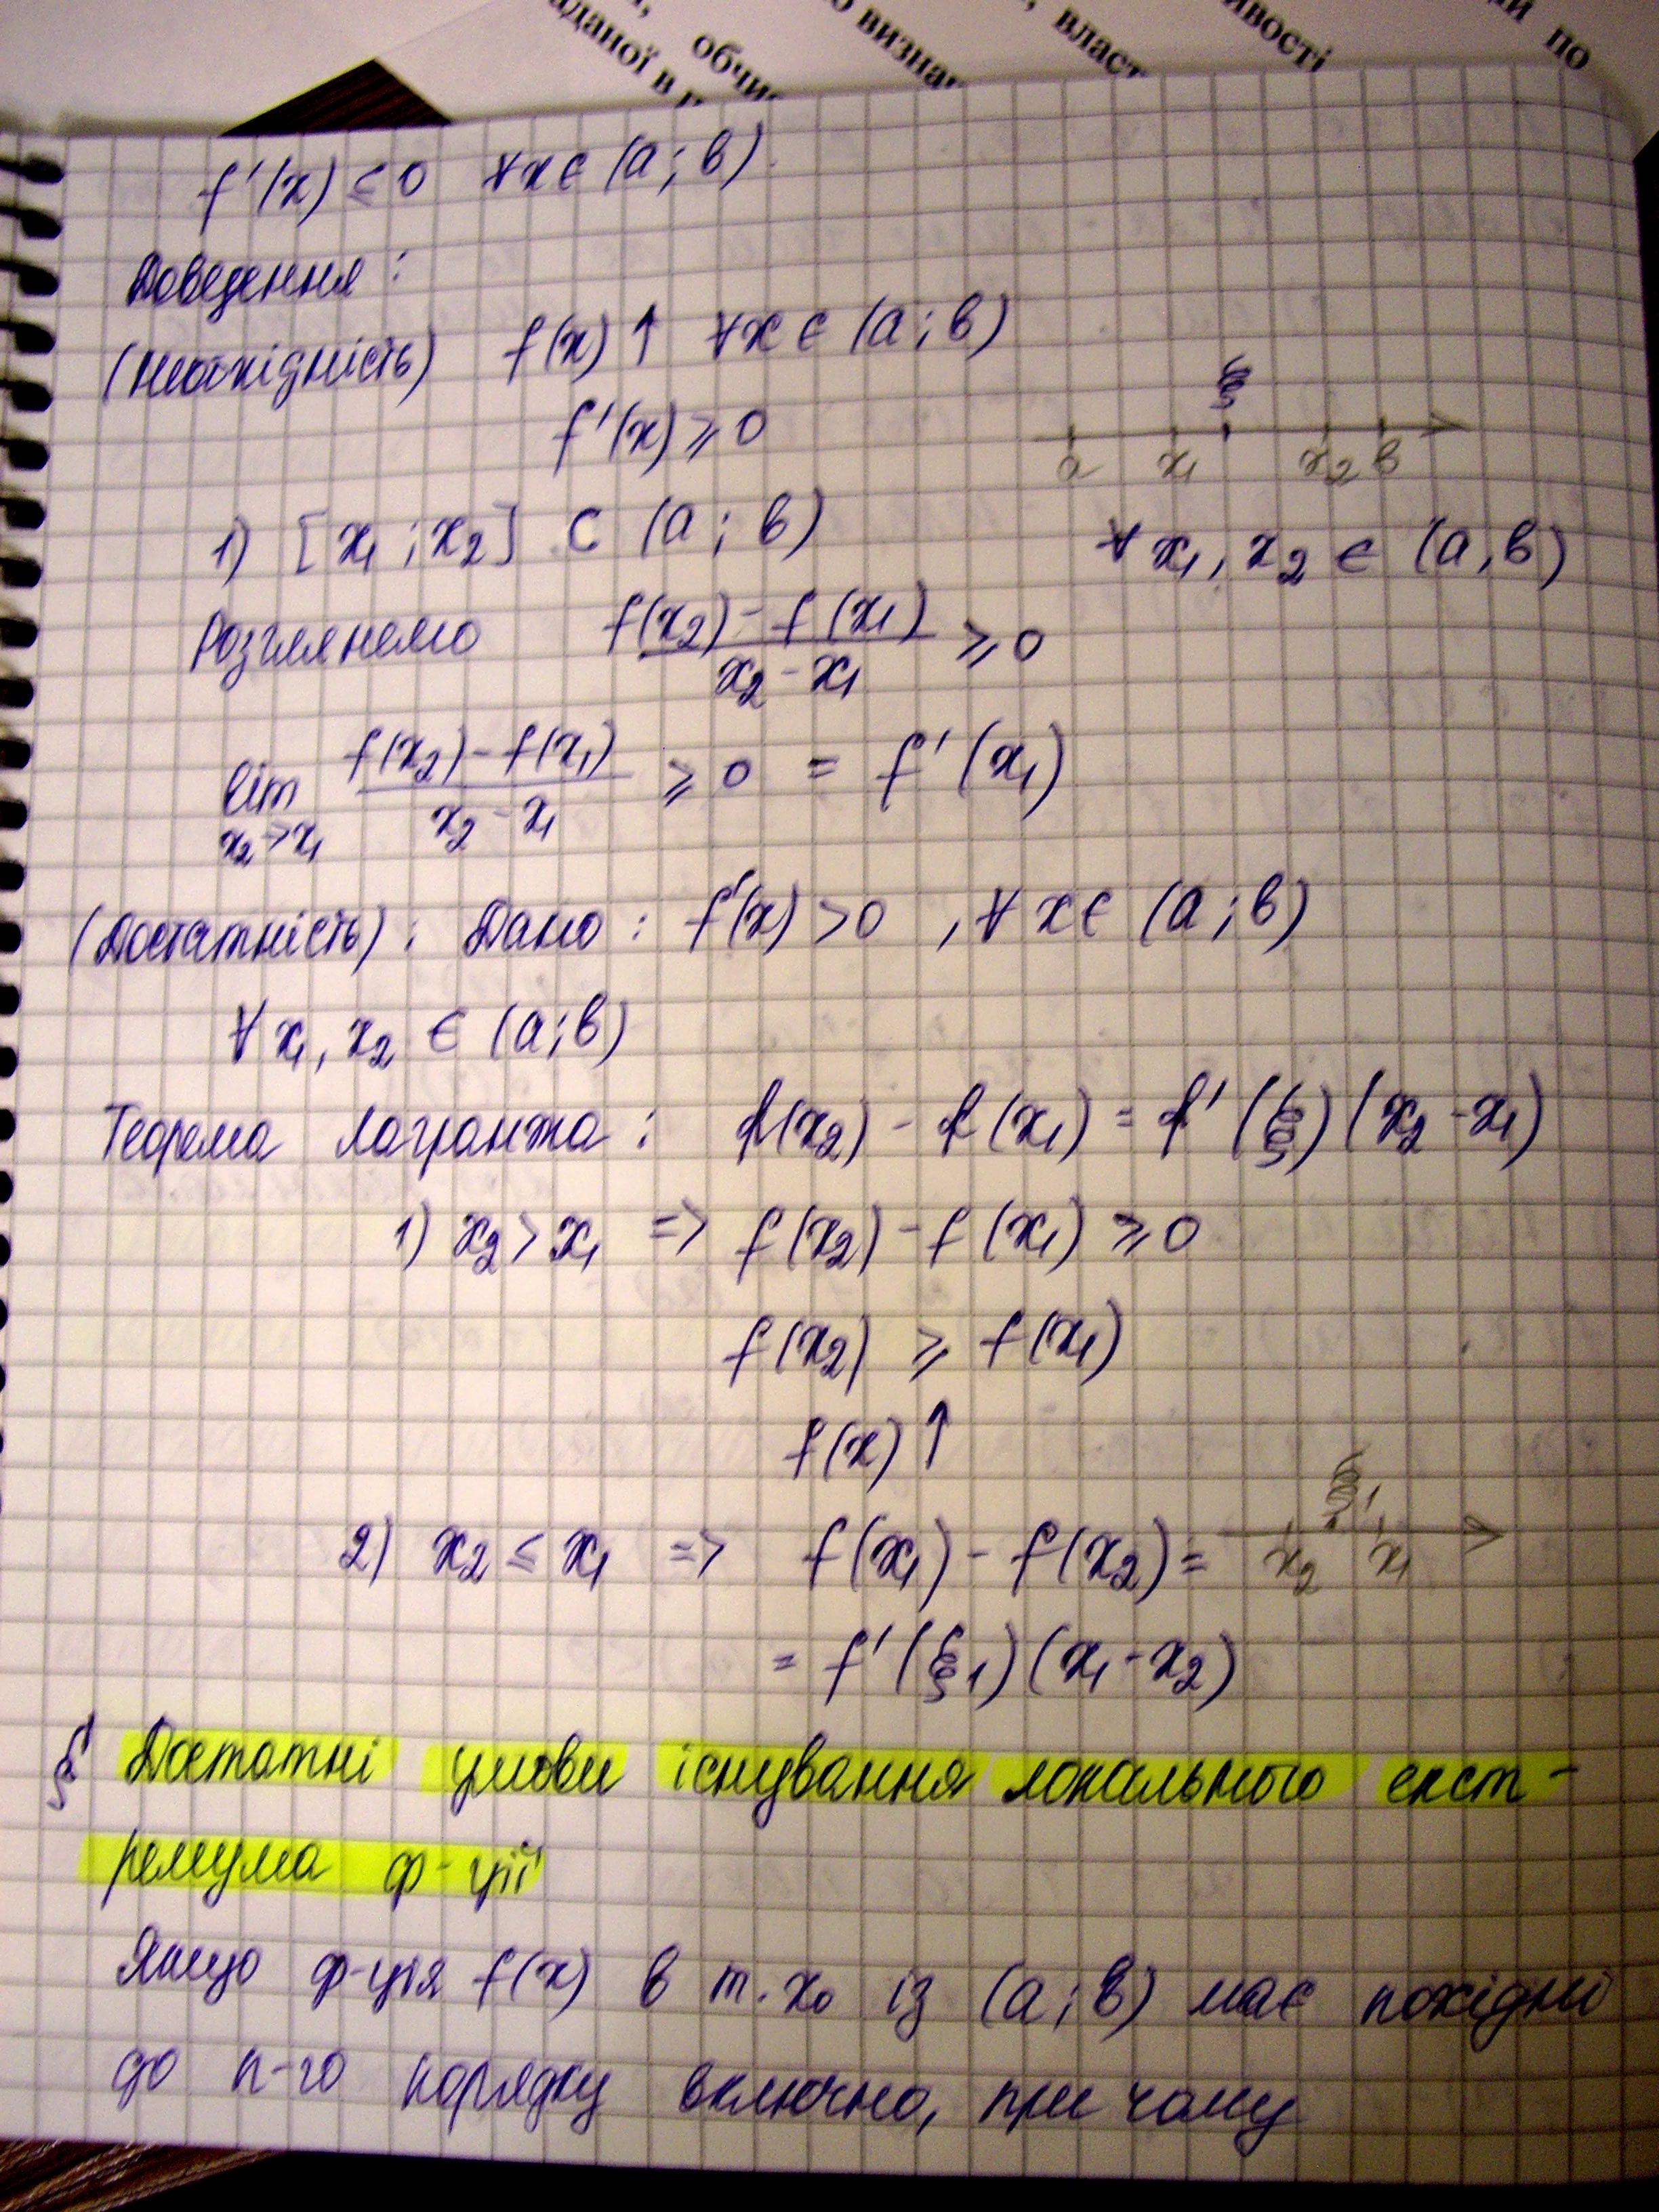 обчи
даної в
визна
власт
ивості
по
f'(x) ≤ 0 ∀x є (a; в).
Доведення:
(Необхідність) f(x)↑ ∀x є (a; в)
f'(x) ≥ 0
ξ
a x₁ x₂ в
1) [x₁; x₂] ⊂ (a; в) ∀ x₁, x₂ є (a, в)
Розглянемо (f(x₂) - f(x₁))/(x₂ - x₁) ≥ 0
lim x₂→x₁ (f(x₂) - f(x₁))/(x₂ - x₁) ≥ 0 = f'(x₁)
(Достатність): Дано: f'(x) > 0, ∀ x є (a; в)
∀ x₁, x₂ є (a; в)
Теорема Лагранжа: f(x₂) - f(x₁) = f'(ξ)(x₂ - x₁)
1) x₂ > x₁ => f(x₂) - f(x₁) ≥ 0
f(x₂) ≥ f(x₁)
f(x)↑
2) x₂ ≤ x₁ => f(x₁) - f(x₂) =
ξ₁
x₂ x₁
= f'(ξ₁)(x₁ - x₂)
§ Достатні умови існування локального екст-
ремума ф-ції
Якщо ф-ція f(x) в т. x₀ із (a; в) має похідні
до n-го порядку включно, при чому